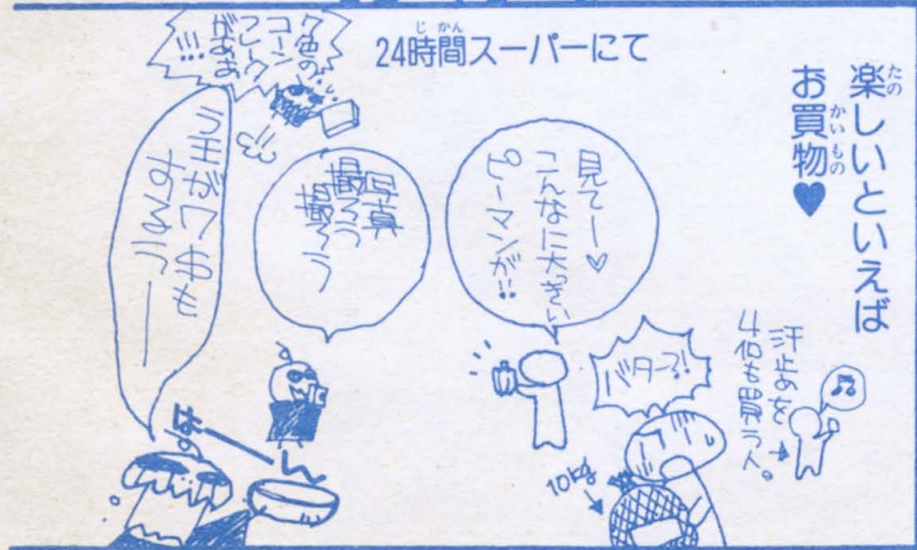 楽しいといえば
お買物♥
24時間スーパーにて
汗止めを
4個も買う人。
バター?!
10kg
見てー♡
こんなに大きい
ピーマンが!!
写真
撮ろう
撮ろう
7色の
コーン
フレーク
があるお
!!!